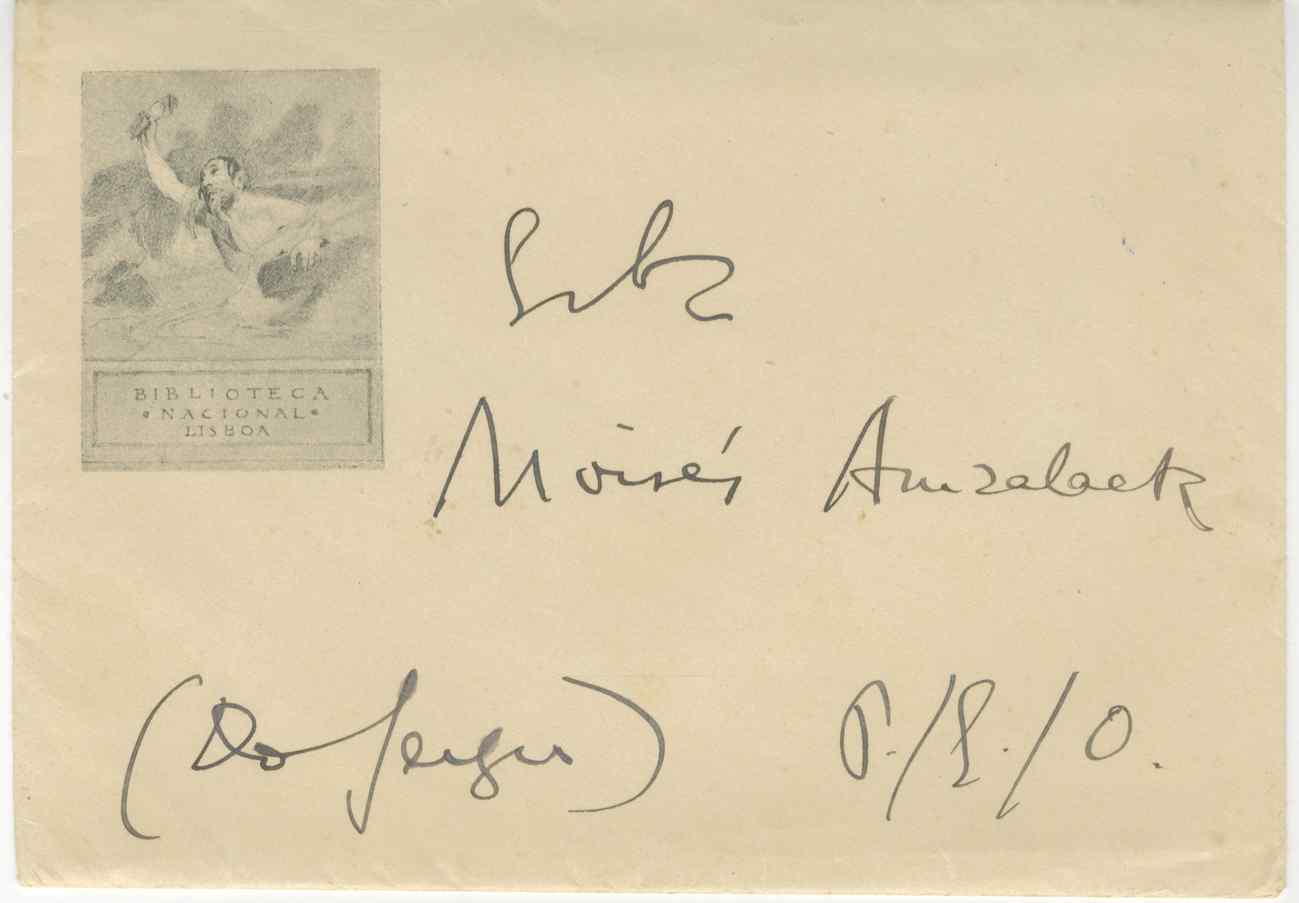 BIBLIOTECA
• NACIONAL •
LISBOA
Moisés Amzalack
(Do Sergio) P./E./O.